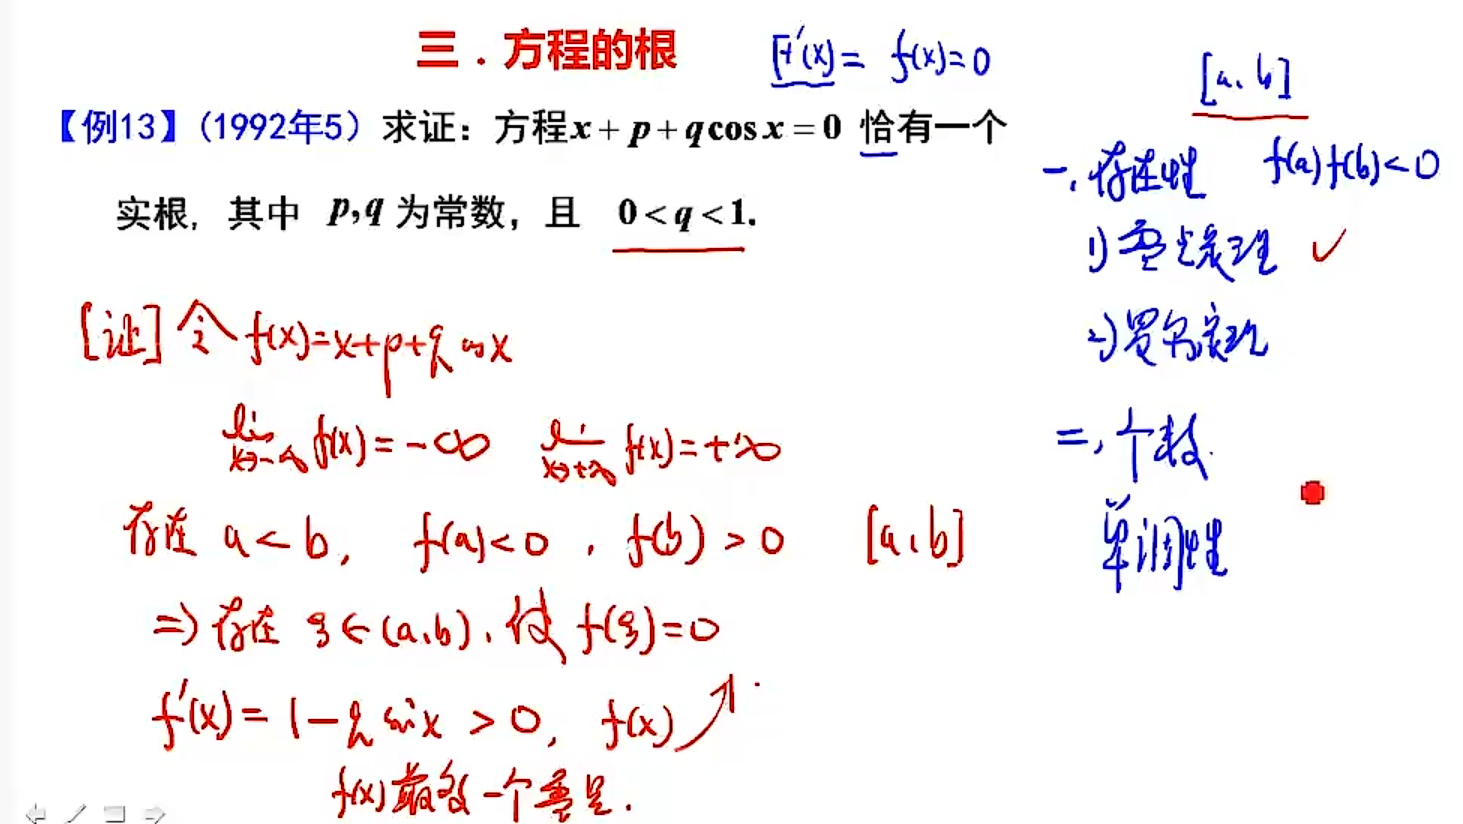 三．方程的根
F'(x) = f(x)=0
【例13】(1992年5）求证：方程x + p + q cos x = 0 恰有一个
实根，其中 p,q 为常数，且 0 < q < 1.
[证] 令 f(x)=x+p+q cos x
lim x→-∞ f(x) = -∞ lim x→+∞ f(x) = +∞
存在 a < b, f(a)<0, f(b) > 0 [a,b]
⇒ 存在 ξ∈(a,b), 使 f(ξ)=0
f'(x) = 1 - q sin x > 0, f(x) ↗
f(x) 最多一个零点.
[a, b]
一, 存在性 f(a)f(b)<0
1) 零点定理 ✓
2) 罗尔定理
二, 个数.
单调性